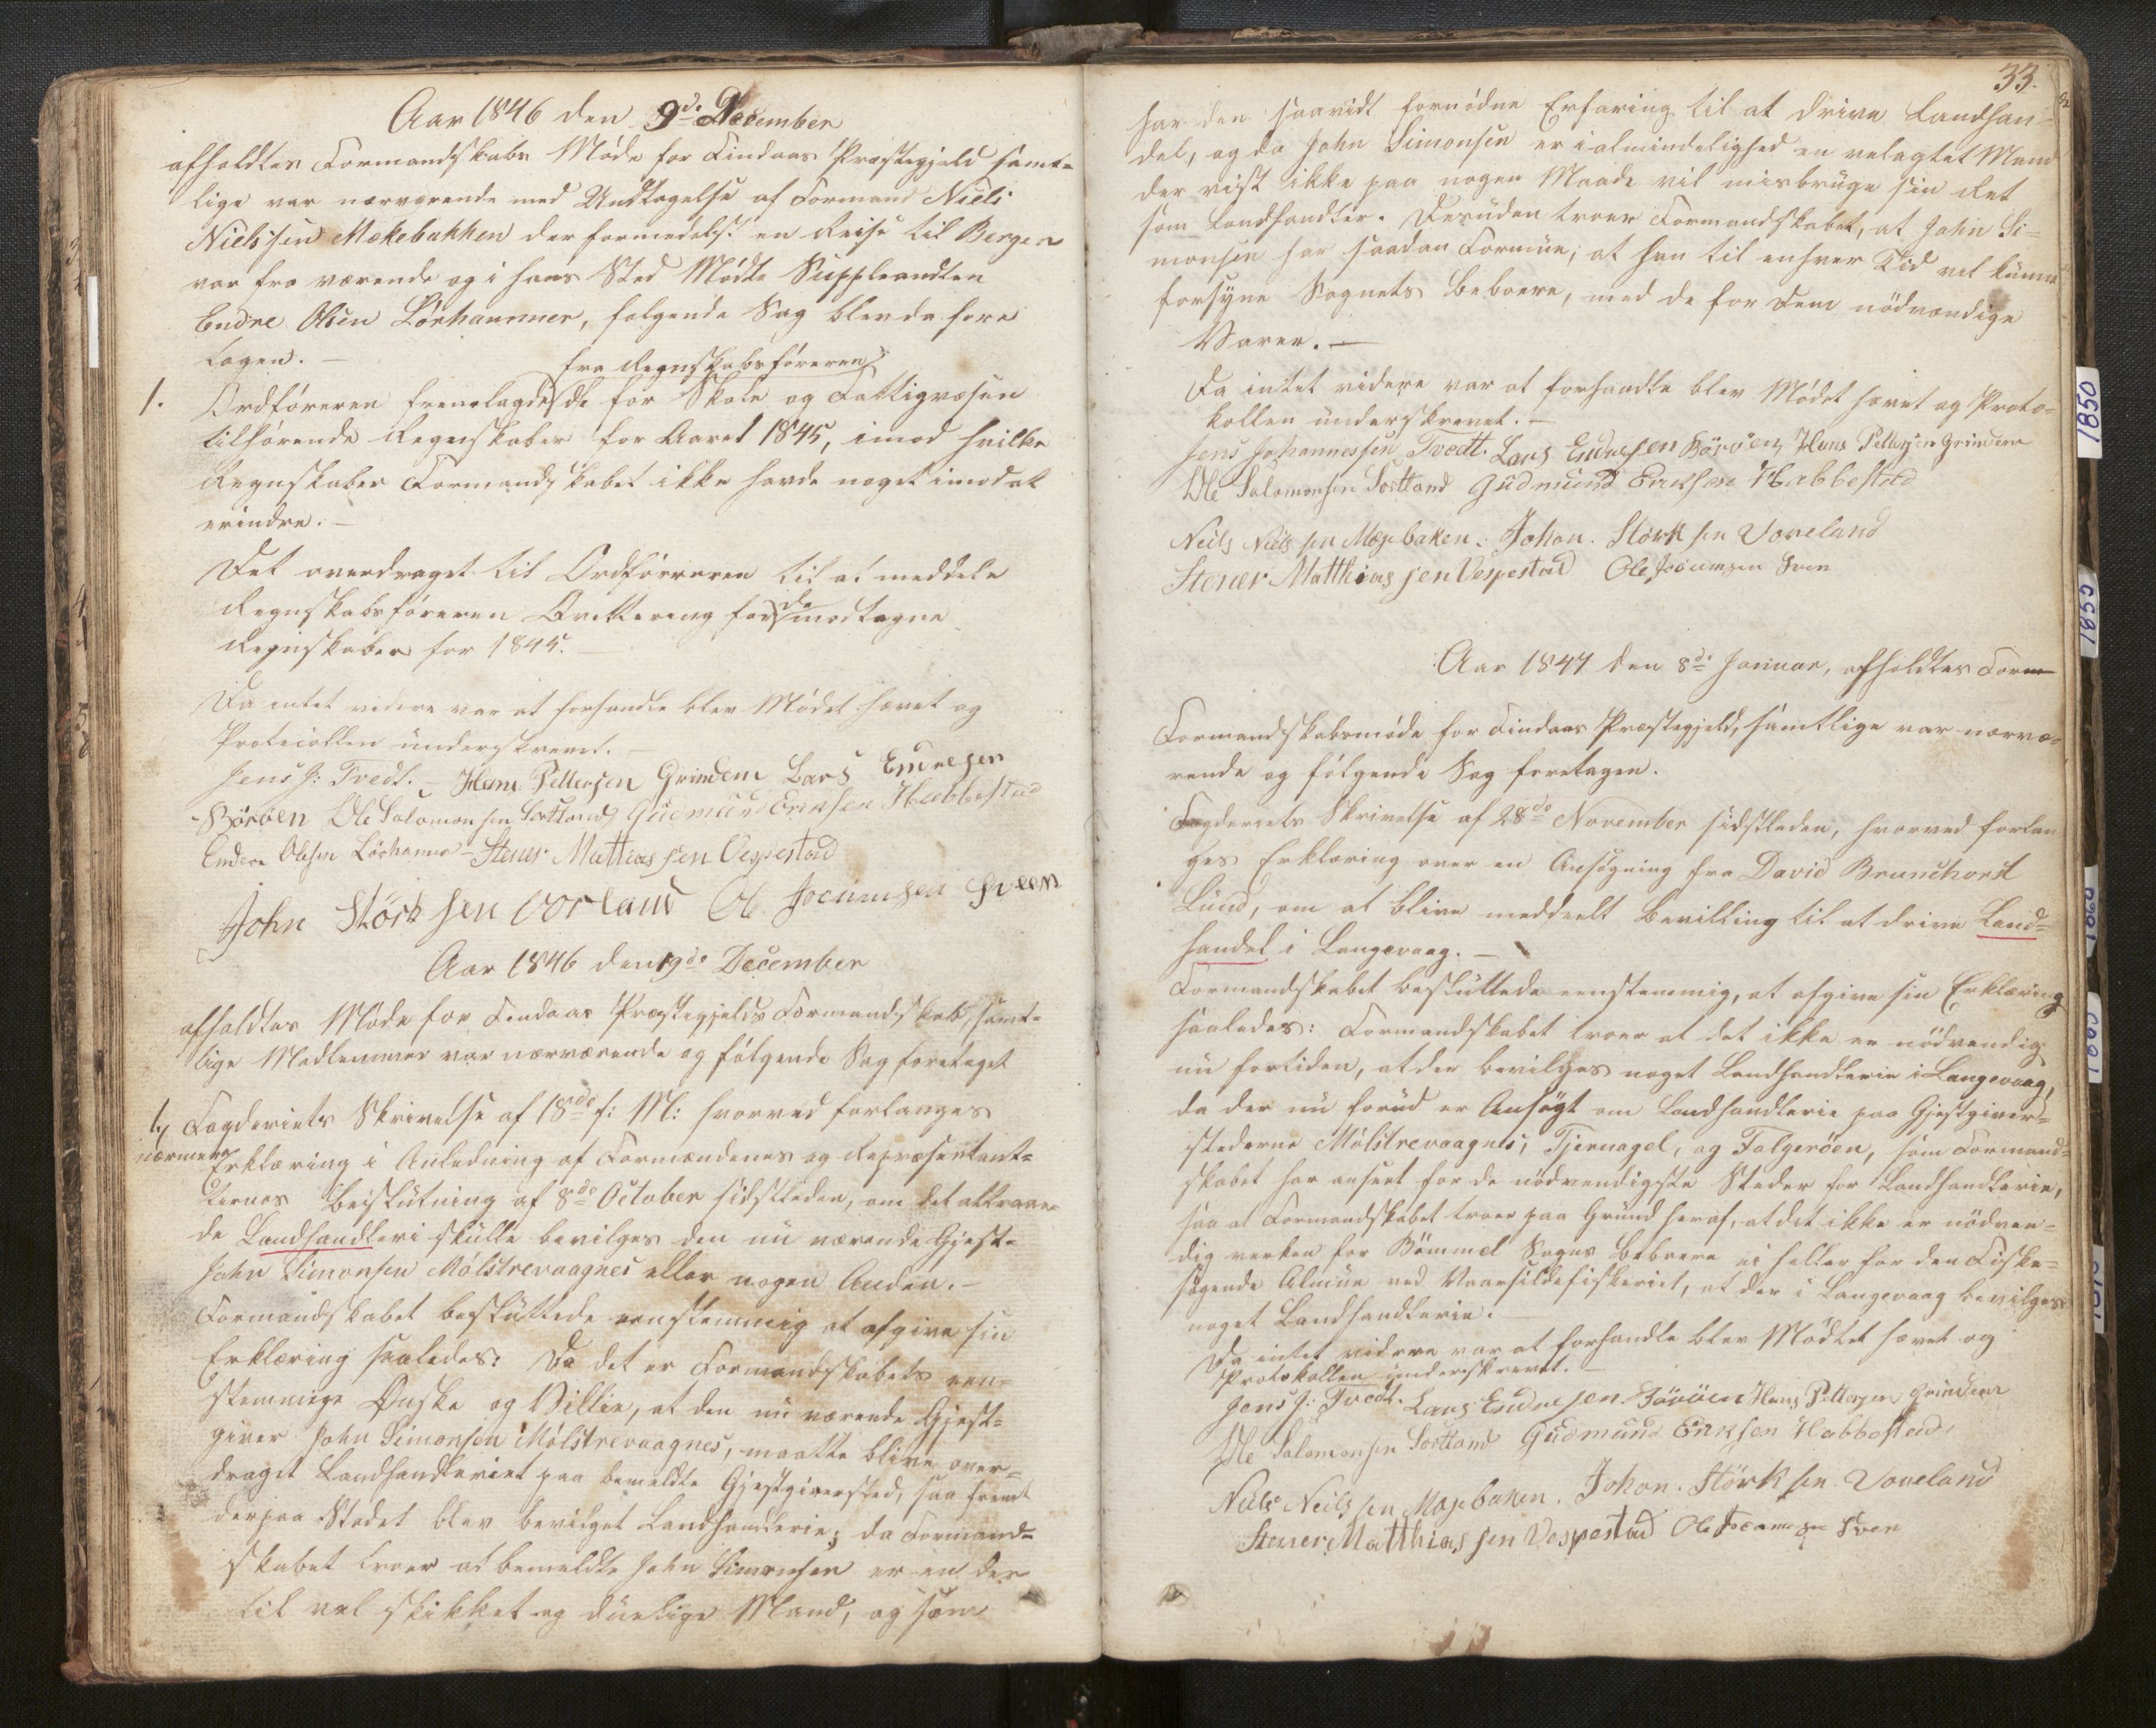 Aar 1846 den 9de December
afholdtes Formandskabs Møde for Findaas Præstegjeld samt-
lige var nærværende med Undtagelse af Formand Niels
Nielssen Mækebakken der formedelst en Reise til Bergen
var fra værende og i hans Sted Mødte Suppleandten
Endre Olsen Lørhammer, følgende Sag blev da fore
tagen. —
fra Regnskabsføreren
1. Ordføreren fremlagde de for Skole og Fattigvæsen
tilhørende Regnskaber for Aaret 1845, imod hvilke
Regnskaber Formandskabet ikke havde noget imod at
erindre. —
Det overdraget til Ordføreren til at meddele
Regnskabsføreren Qvittering for de modtagne
Regnskaber for 1845. —
Da intet videre var at forhandle blev Mødet hævet og
Protocollen underskrevet. —
Jens J: Tvedt. – Hans Pettersen Grindem Lars Endresen
Børøen Ole Salomonsen Sortland Gudmund Eriksen Hæbbestad
Endere Olesen Lørhamer – Stener Mattiassen Vespestad
John Størksen Vorland Ole Jocumsen Sveen
Aar 1846 den 19de December
afholdtes Møde for Findaas Præstegjelds Formandskab, samt-
lige Medlemmer var nærværende og følgende Sag foretaget
1, Fogderiets Skrivelse af 18de f: M: hvorved forlanges
nærmere Erklæring i Anledning af Formændenes og Repræsentant-
ternes Beslutning af 8de October sidstleden, om det attraae-
de Landhandleri skulle bevilges den nu værende Gjest-
John Simonsen Mølstrevaagnes eller nogen Anden. –
Formandskabet besluttede eenstemmig at afgive sin
Erklæring saaledes: Da det er Formandskabets een-
stemmige Ønske og Villie, at den nu værende Gjest-
giver John Simonsen Mølstrevaagnes, maatte blive over-
draget Landhandleriet paa bemeldte Gjestgiversted, saa fremt
der paa Stedet blev bevilget Landhandlerie; da Formand-
skabet troer at bemeldte John Simonsen er en der
til vel skikket og duelige Mand, og som
33.
har den saavidt fornødne Erfaring til at drive Landhan-
del, og da John Simonsen er i almindelighed en velagtet Mand
der vist ikke paa nogen Maade vil misbruge sin Ret
som Landhandler. Desuden troer Formandskabet, at John Si-
monsen har saadan Formue, at han til enhver Tid vil kunne
forsyne Sognets Beboere, med de for Dem nødvændige
Varer. —
Da intet videre var at forhandle blev Mødet hævet og Proto-
kollen underskrevet. –
Jens Johannessen Tvedt. Lars Endresen Børøen Hans Pettersen Grindem
Ole Salomonsen Sortland Gudmund Eriksen Hæbbestad
Neils Neilssen Mæjebaken. Johan. Størksen Voreland
Stener Matthiassen Vespestad Ole Jocumsen Sven
Aar 1847 den 8de Januar, afholdtes Form
Formandskabsmøde for Findaas Præstegjeld, samtlige var nærvæ-
rende og følgende Sag foretagen.
Fogderiets Skrivelse af 28de November sidstleden, hvorved forlan
ges Erklæring over en Ansøgning fra David Brunchorst
Lund, om at blive meddeelt Bevilling til at drive Land-
handel i Langevaag. –
Formandskabet besluttede eenstemmig, at afgive sin Erklæring
saaledes: Formandskabet troer at det ikke er nødvendig
nu fortiden, at der bevilges noget Landhandlerie i Langevaag,
da der nu forud er Ansøgt om Landhandlerie paa Gjestgiver-
stederne Mølstrevaagnes, Tjernagel, og Folgerøen, som Formand-
skabet har anseet for de nødvendigste Steder for Landhandlerie,
saa at Formandskabet troer paa Grund heraf, at det ikke er nødven-
dig verken for Bømmel Sogns Beboere ei heller for den Fiske-
søgende Almue ved Vaarsildefiskeriet, at der i Langevaag bevilges
noget Landhandlerie. –
Da intet videre var at forhandle blev Mødtet hævet og
Protokollen underskrevet. –
Jens J: Tvedt. Lars Endresen Børøen Hans Pettersen Grindem
Ole Salomonsen Sortland Gudmund Eriksen Habbestad.
Niels Neilssen Mæjebaken. Johan. Størksen Voreland
Stener Matthiassen Vespestad Ole Jocumsen Sven
1850